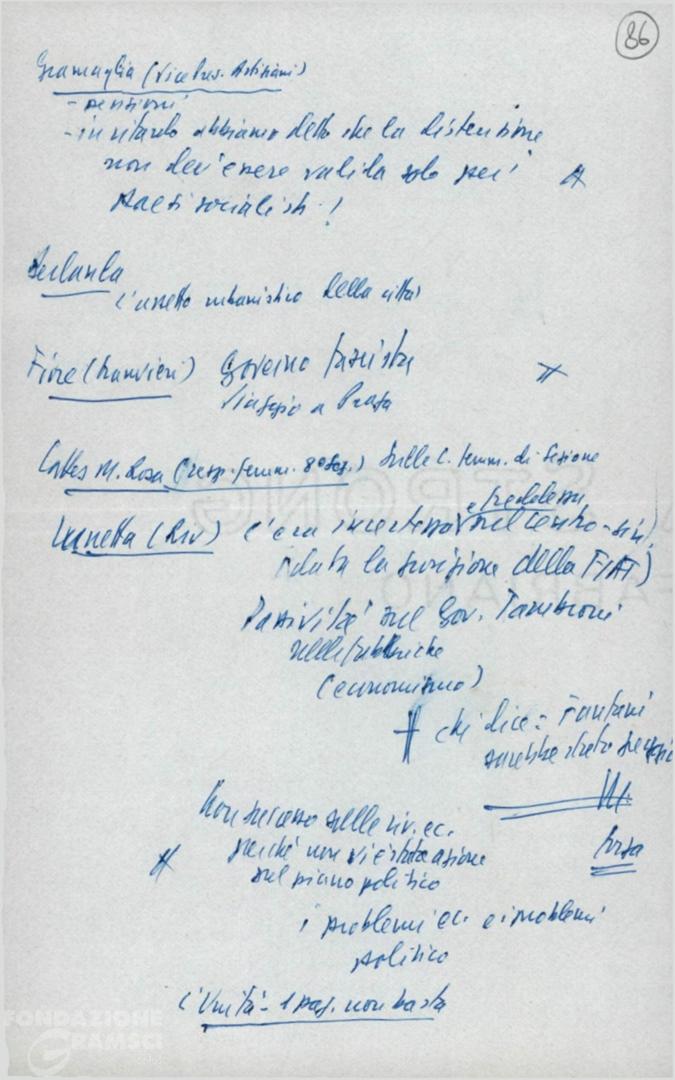 86
Gramaglia (Vicepres. Artigiani)
- pensioni
- in ritardo abbiamo detto che la distensione
non dev'essere valida solo per i
Paesi socialisti!
L'assetto urbanistico della città
Fiore (tranvieri) Governo fascista
Viaggio a Praga
M. Rosa (resp. femm. 8º Sez.) Sulle C. femm. di Sezione
e
(Riv) c'era incertezza sul centro-sin.
data la posizione della FIAT)
Passività sul Gov. Tambroni
nelle fabbriche
(economismo)
chi dice: Fanfani
sarebbe stato
Non successo nelle riv. ec.
perché non vi è stata azione
sul piano politico
i problemi ec. e i problemi
politico
L'Unità - 1 pag. non basta
FONDAZIONE
GRAMSCI
STRONG
FABRIANO